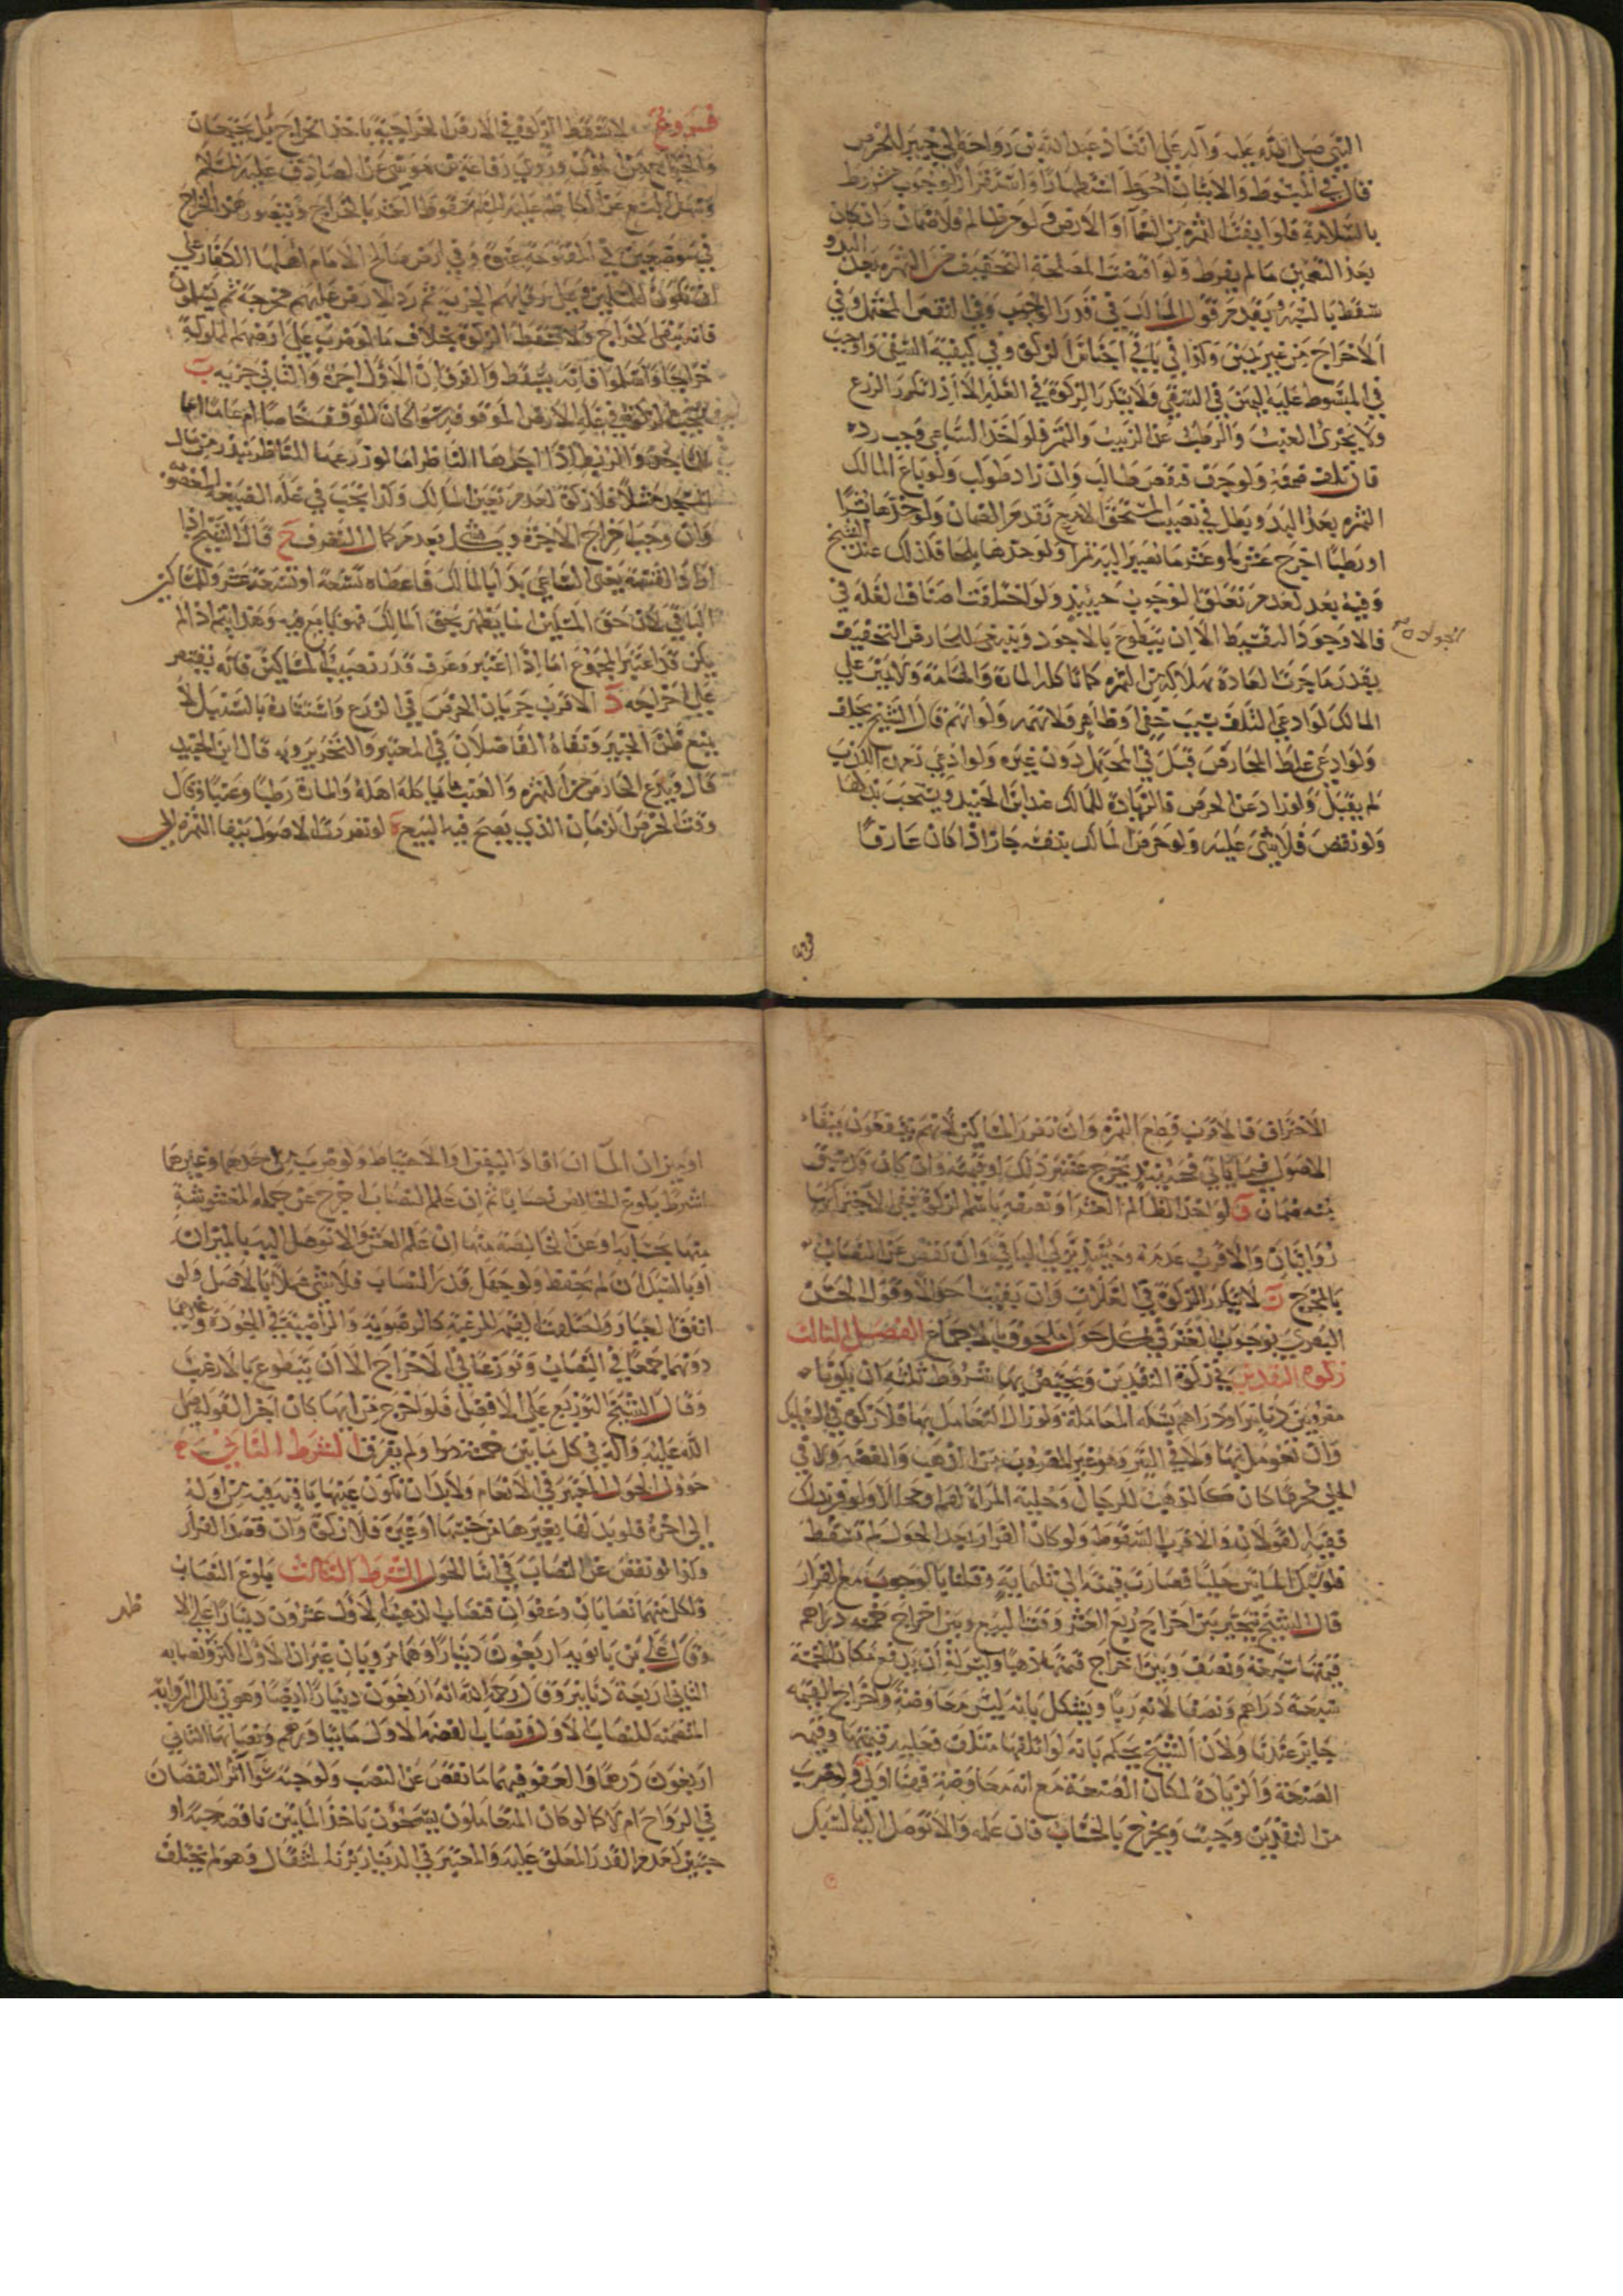 النبي صلى الله عليه وآله على انفاذ عبد الله بن رواحة الى خيبر للخرص
قال في المبسوط والاتيان احوط استظهارا واستقرار الوجوب مشروط
بالسلامة فلو ايفت الثمرة من السماء او الارض ولو من ظالم فلا ضمان وان كان
بعد التضمين ما لم يفرط ولو اقتضت المصلحة التخفيف من الثمرة بعد البدو
سقط بالنسبة ويقدم قول المالك في قدر الواجب وفي النقص المحتمل وفي
الاخراج من غير يمين وكذا في باقي اجناس الزكوة وفي كيفية السقي واوجب
في المبسوط عليه اليمين في السقي ولا يتكرر الزكوة في الغلة الا اذا تكرر الزرع
ولا يجزئ العنب والرطب عن الزبيب والتمر فلو اخذ الساعي وجب رده
فان تلف ضمنه ولو جف فنقص طالب وان زاد طولب ولو باع المالك
الثمرة بعد البدو بطل في نصيب المستحق الا مع تقدم الضمان ولو
او رطبا اخرج عشرها وعشر ما يصير اليه تمرا ولو جذها بلحا فكذلك عند الشيخ
وفيه بعد لعدم تعلق الوجوب حينئذ ولو اختلفت اصناف الغلة في
الجودة
فالاوجه التقسيط الا ان يتطوع بالاجود وينبغي للخارص التخفيف
بقدر ما جرت العادة بهلاكه من الثمرة كما تاكله المارة والهامة ولا يمين على
المالك لو ادعى التلف بسبب خفي او ظاهر ولا تهمة ولو اتهم قال الشيخ يحلف
ولو ادعى غلط الخارص قبل في المحتمل دون غيره ولو ادعى تعمده الكذب
لم يقبل ولو زاد عن الخرص فالزيادة للمالك عند ابن الجنيد ويستحب بذلها
ولو نقص فلا شيء عليه ولو خرص المالك بنفسه جاز اذا كان عارفا
فروع
فروع لا تسقط الزكوة في الارض الخراجية باخذ الخراج بل يجتمعان
في موضعين في المفتوحة عنوة وفي ارض صالح الامام اهلها الكفار على
ان تكون للمسلمين وعلى رقابهم الجزية ثم رد الارض عليهم مخرجة ثم يسلمون
فانه يبقى الخراج ولا تسقط الزكوة بخلاف ما لو ضرب على ارضهم المملوكة
خراجا واسلموا فانه يسقط والفرق ان الاول اجرة والثاني جزية ب
تجب الزكوة في غلة الارض الموقوفة سواء كان الموقف خاصا ام عاما اما
المسجد مثلا فلا زكوة لعدم تعين المالك وكذا تجب في غلة الضيعة المغصوبة
وان وجب اخراج الاجرة ويشكل بعدم كمال التصرف ج قال الشيخ اذا
اراد القسمة يعني الساعي بدأ بالمالك فاعطاه تسعة او تسعة عشر والمساكين
الباقي لان حق المسلمين انما يظهر بحق المالك فهو تابع فيه وهذا يتم اذا لم
يكن قد اعتبر المجموع اما اذا اعتبر وعرف قدر نصيب المساكين فانه يقتصر
على اخراجه د الاقرب جريان الخرص في الزرع واستفادة بالسنبل لا
يمنع ظن الخبير ونفاه الفاضلان في المعتبر والتحرير وبه قال ابن الجنيد
قال ويدع الخارص من الثمرة والعنب ما ياكله اهله والمارة رطبا وعنبا وقال
وقت الخرص الزمان الذي يصح فيه البيع ه لو تضررت الاصول ببقاء الثمرة الى
الاحتراف فالاقرب قطع الثمرة وان تضرر المساكين لانهم ينتفعون ببقاء
الاصول فيما يأتي فحينئذ يخرج عشر ذلك او قيمته وان كان قد سبق
منه ضمان و لو اخذ الظالم العشر او نصفه باسم الزكوة ففي الاجتزاء به
روايتان والاقرب عدمه وحينئذ يزكي الباقي وان نقص عن النصاب
بالمخرج ز لا يتكرر الزكوة في الغلات وان بقيت احوالا وقول الحسن
البصري بوجوب العشر في كل حول ملحوق بالاجماع الفصل الثالث
زكوة النقدين في زكوة النقدين ويختص بهما شروط ثلثة ان يكونا
مضروبين دنانير او دراهم بسكة المعاملة ولو زال التعامل بهما فلا زكوة في السبايك
وان تعومل بها ولا في التبر وهو غير المضروب من الذهب والفضة ولا في
الحلي محرما كان كالذهب للرجال وحلية المراة لهم او محللا ولو فر بذلك
ففيه قولان والاقرب السقوط ولو كان الفرار بعد الحول لم تسقط
فلو سبك المايتين حليا فصارت قيمته الى ثلثماية وقلنا بالوجوب مع الفرار
قال الشيخ يتخير بين اخراج ربع العشر وقت البيع وبين اخراج خمسة دراهم
قيمتها سبعة ونصف وبين اخراج قيمتها ذهبا وليس له ان يدفع مكان الخمسة
سبعة دراهم ونصفا لانه ربا ويشكل بانه ليس معاوضة واخراج القيمة
جايز عندنا ولان الشيخ يحكم بانه لو اتلفها متلف فعليه قيمتها وقيمة
الصنعة والزيادة لمكان الصنعة مع انه معاوضة فهنا اولى ولو ضرب
من النقدين وجبت ويخرج بالحساب فان علمه والا توصل اليه بالسبك
او ميزان الماء ان افاد اليقين او الاحتياط ولو ضرب من احدهما وغيرهما
اشترط بلوغ الخالص نصابا ثم ان علم النصاب اخرج عن جملة المغشوشة
منها بحسابه او عن الخالصة منها ان علم الغش والا توصل اليه بالميزان
او بالسبك ان لم يحفظ ولو جهل قدر النصاب فلا شيء عملا بالاصل ولو
اتفق العيار واختلفت القيمة للرغبة كالرضوية والراضية في الجودة وغيرهما
دونهما جمعا في النصاب ووزعا في الاخراج الا ان يتطوع بالارغب
وقال الشيخ التوزيع على الافضل فلو اخرج من ايها كان اجزأ لقوله صلى
الله عليه وآله في كل مايتين خمسة دراهم ولم يفرق الشرط الثاني
حؤول الحول المعتبر في الانعام ولا بد ان تكون عينها باقية فيه من اوله
الى اخره فلو بدلها بغيرها من جنسها او غيره فلا زكوة وان قصد الفرار
وكذا لو نقص عن النصاب في اثناء الحول الشرط الثالث بلوغ النصاب
ولكل منهما نصابان وعفوان فنصاب الذهب الاول عشرون دينارا على الا
ظهر
وقال علي بن بابويه اربعون دينارا وهما مرويان غير ان الاول اكثر ونصابه
الثاني اربعة دنانير وقال رحمه الله انه اربعون دينارا ايضا وهو في تلك الرواية
المتضمنة للنصاب الاول ونصاب الفضة الاول مايتا درهم ونصابها الثاني
اربعون درهما والعفو فيهما ما نقص عن النصب ولو حبة سواء اثر النقصان
في الرواج ام لا كما لو كان المتعاملون يسمحون باخذ المايتين ناقصة حبة او
حبتين لعدم القدر المعلق عليه والمعتبر في الدينار بزنة المثقال وهو لم يختلف